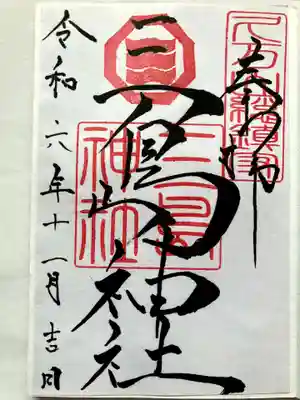 奉拝
三島神社
三島
神社
令和六年十一月吉日